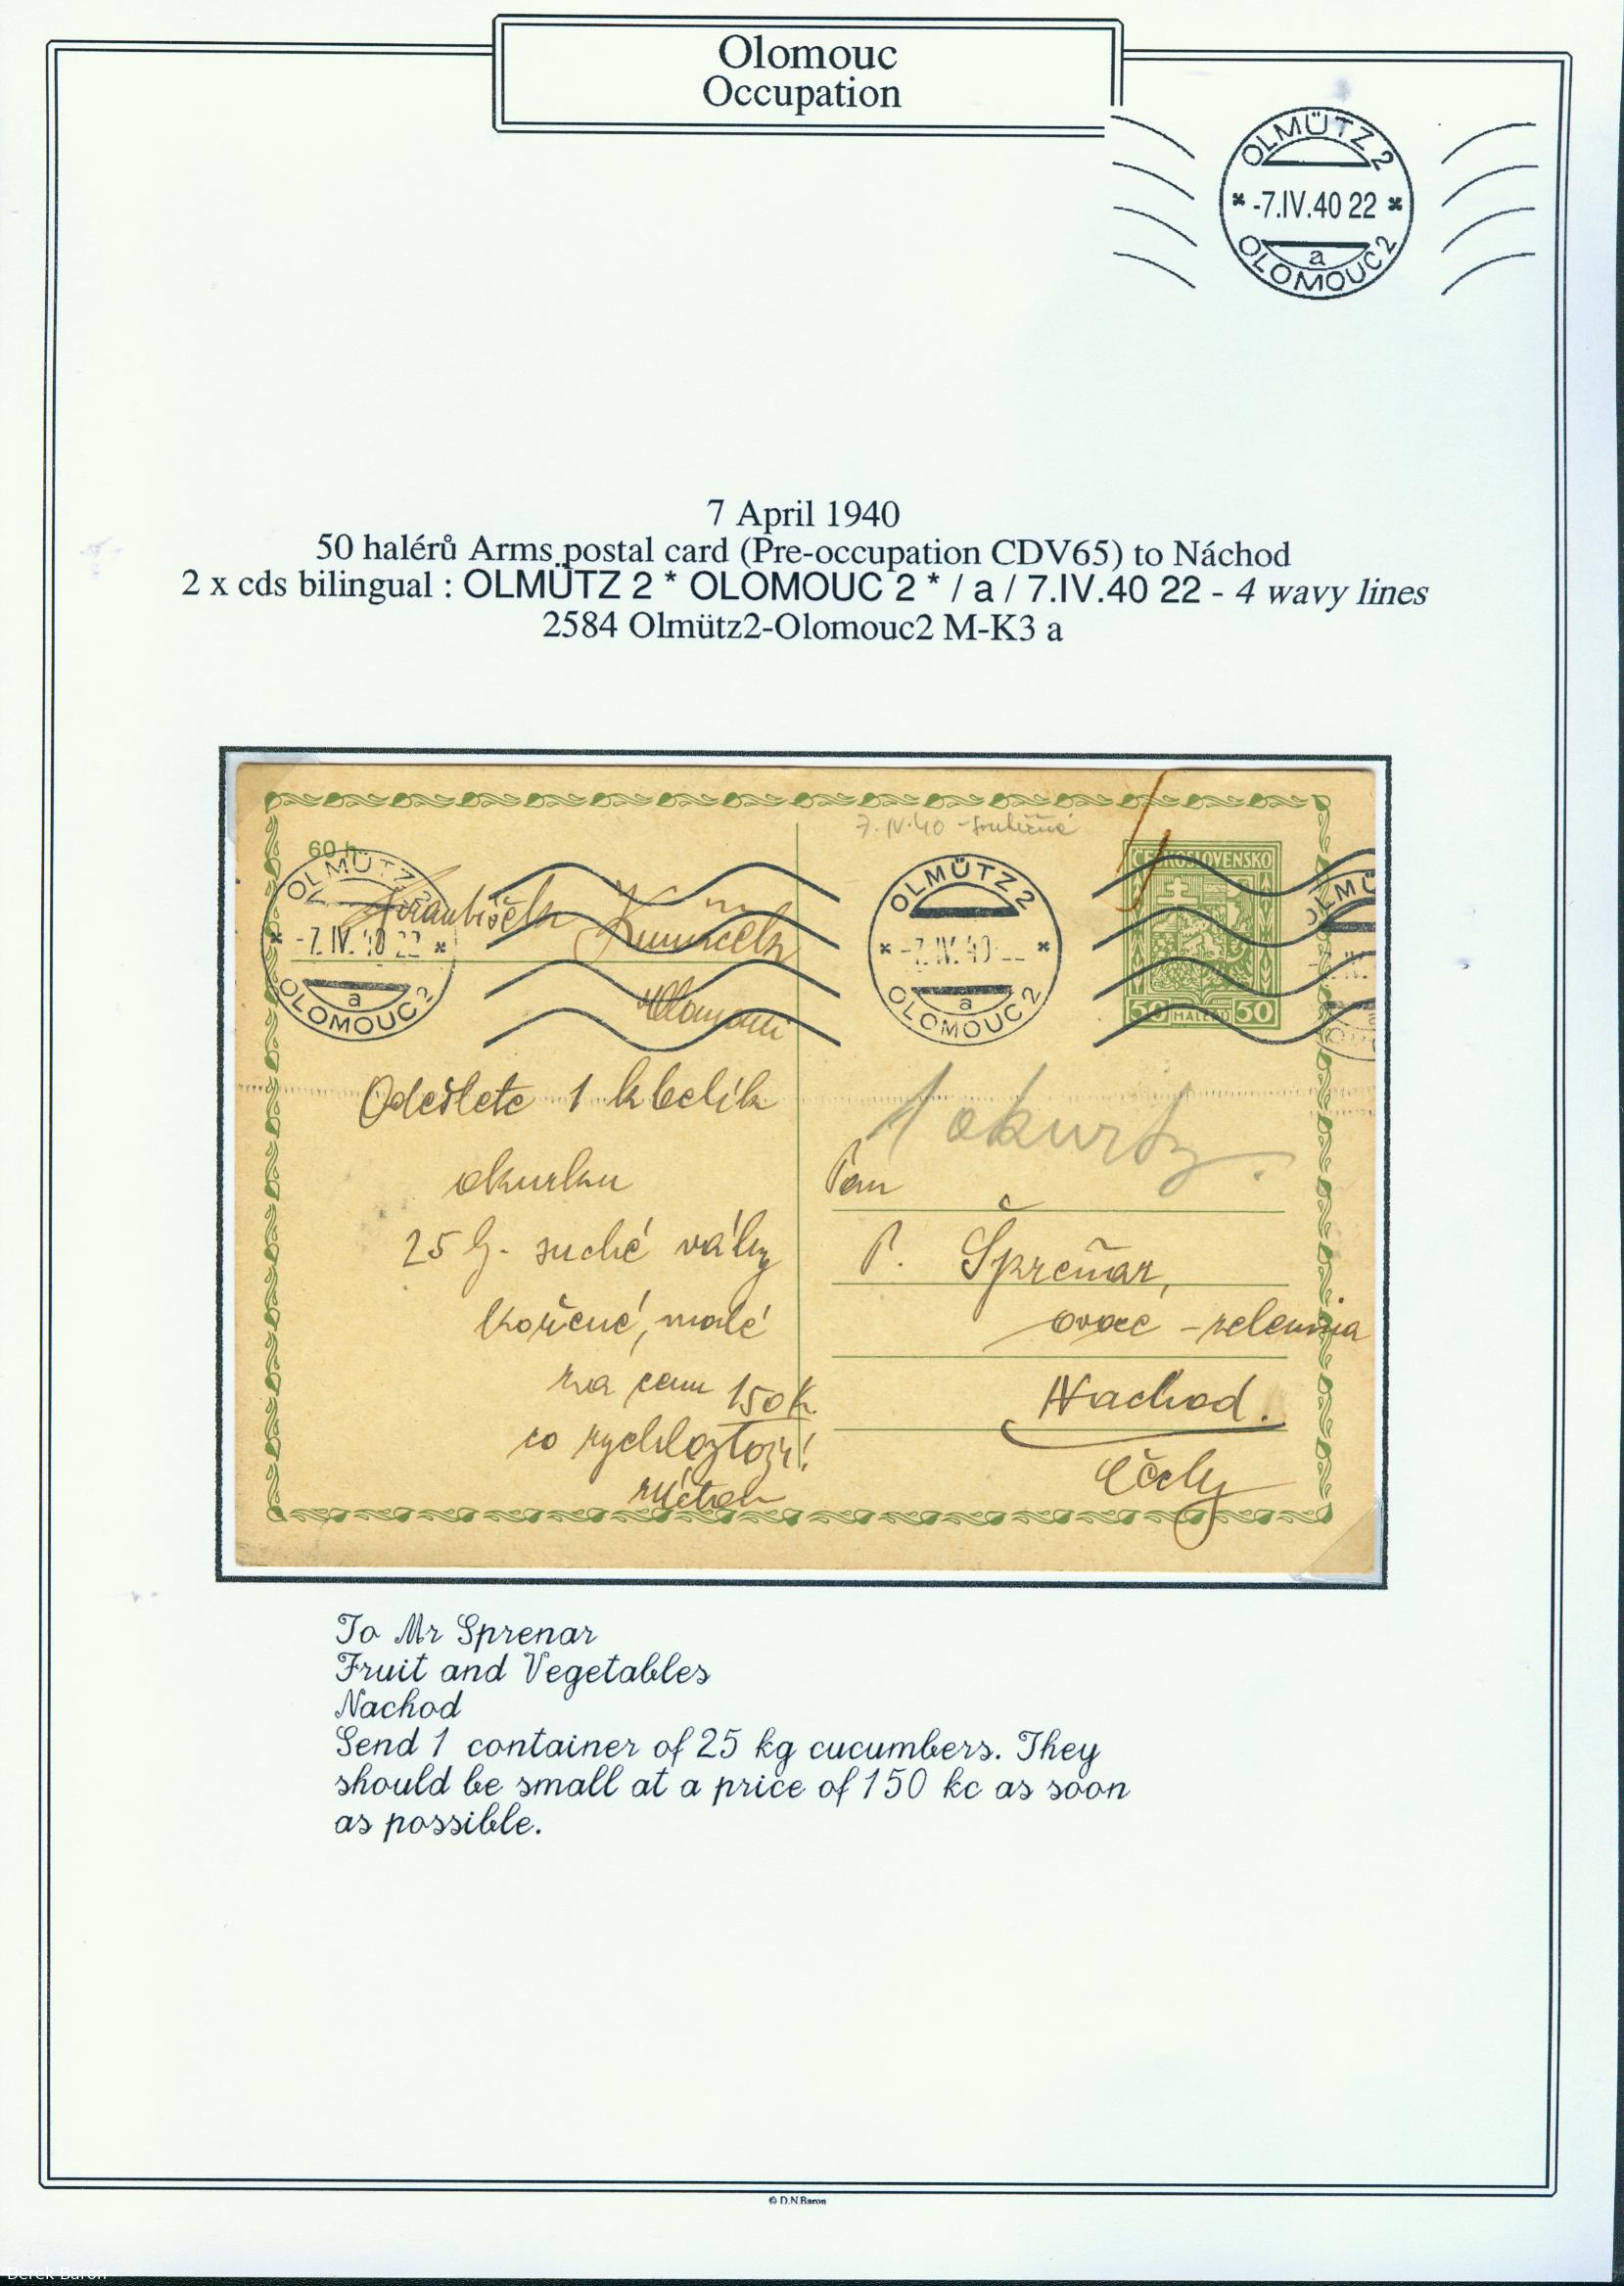 Olomouc
Occupation
OLMÜTZ 2
* -7.IV.40 22 *
a
OLOMOUC 2
7 April 1940
50 halérů Arms postal card (Pre-occupation CDV65) to Náchod
2 x cds bilingual : OLMÜTZ 2 * OLOMOUC 2 * / a / 7.IV.40 22 - 4 wavy lines
2584 Olmütz2-Olomouc2 M-K3 a
7.IV.40
60 h
OLMÜTZ 2
* -7.IV.40 22 *
a
OLOMOUC 2
OLMÜTZ 2
* -7.IV.40 *
a
OLOMOUC 2
ČESKOSLOVENSKO
50 HALÉŘŮ 50
OLMÜ
Olomouc
Odešlete 1 kbelík
okurku
25 suché
malé
za cenu 150 K
co
1 okurky.
Pan
P. Špreňar,
ovoce - zelenina
Nachod.
Čechy
To Mr Sprenar
Fruit and Vegetables
Nachod
Send 1 container of 25 kg cucumbers. They
should be small at a price of 150 kc as soon
as possible.
© D.N.Baron
Derek Baron